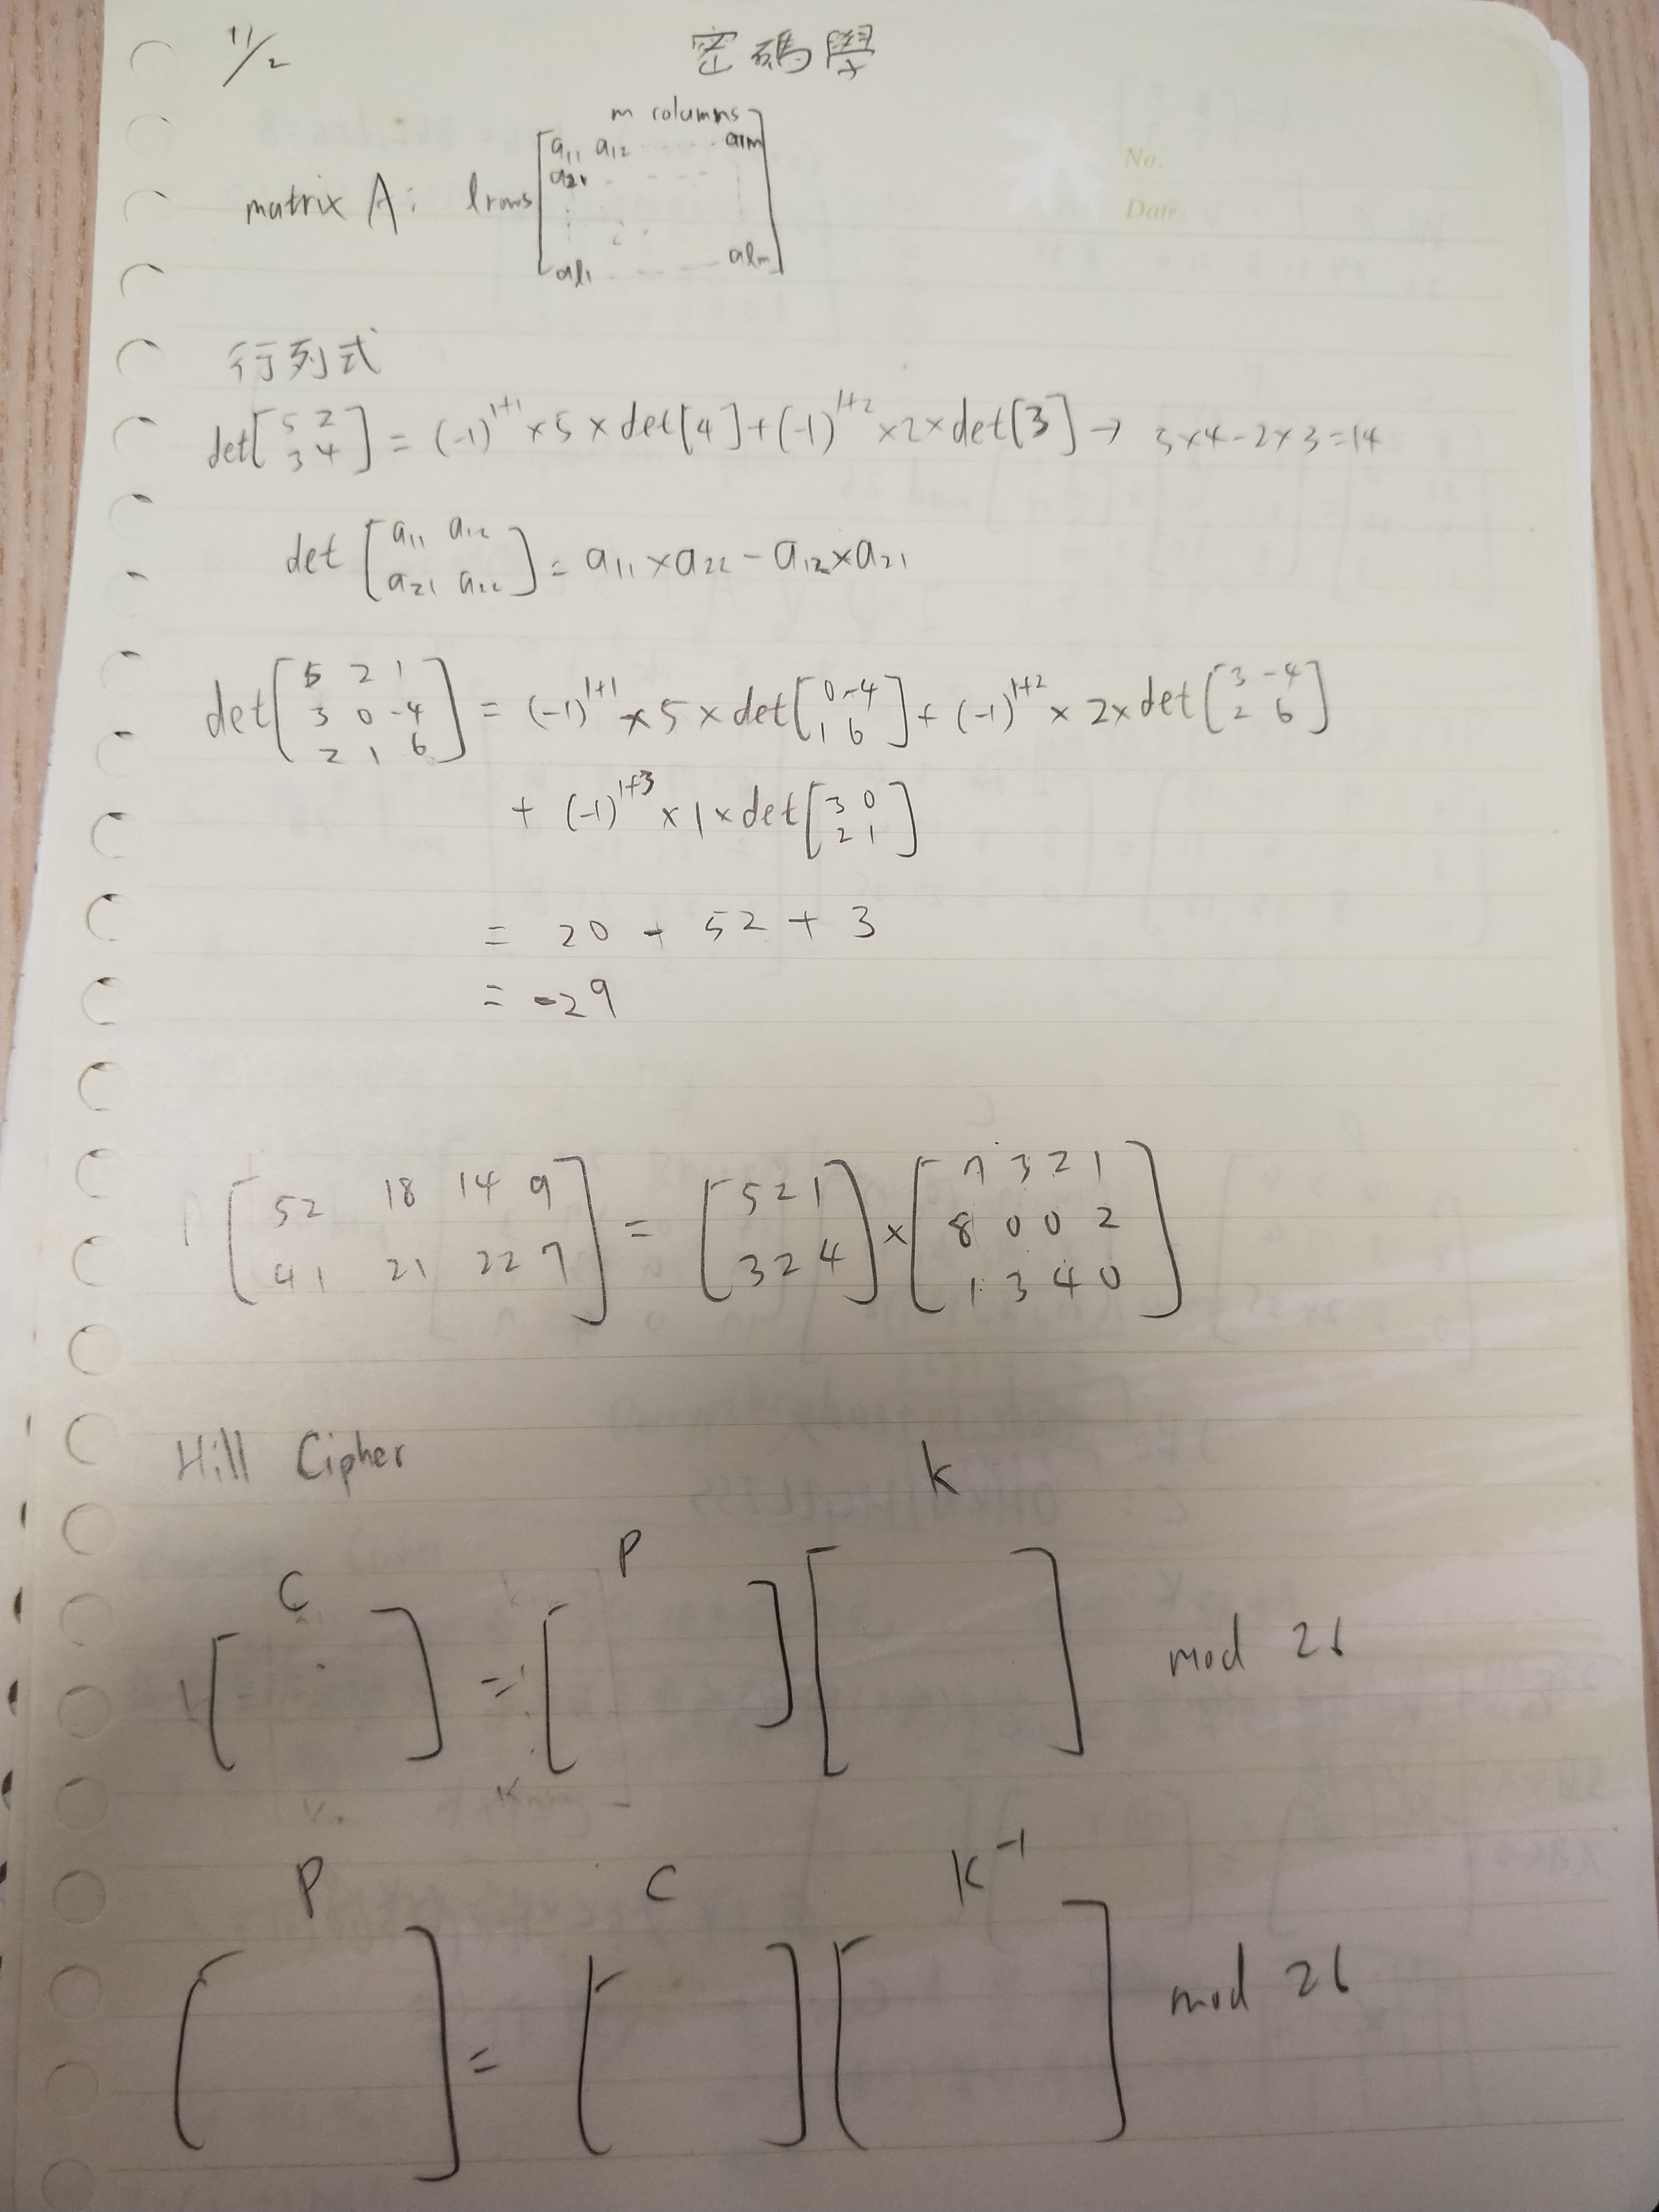 11/2 密碼學
No.
Date
m columns
matrix A: l rows [a11 a12 ...... a1m
a21 ......
al1 ...... alm]
行列式
det[5 2
3 4] = (-1)^1+1 ×5×det[4]+(-1)^1+2 ×2×det[3] → 5×4-2×3=14
det [a11 a12
a21 a22] = a11×a22-a12×a21
det[5 2 1
3 0 -4
2 1 6] = (-1)^1+1 ×5×det[0 -4
1 6] + (-1)^1+2 × 2×det[3 -4
2 6]
+ (-1)^1+3 ×1×det[3 0
2 1]
= 20 - 52 + 3
= -29
[52 18 14 9
41 21 22 7] = [5 2 1
3 2 4] × [7 3 2 1
8 0 0 2
1 3 4 0]
Hill Cipher
C P K
[ ] = [ ] [ ] mod 26
P C K^-1
[ ] = [ ] [ ] mod 26